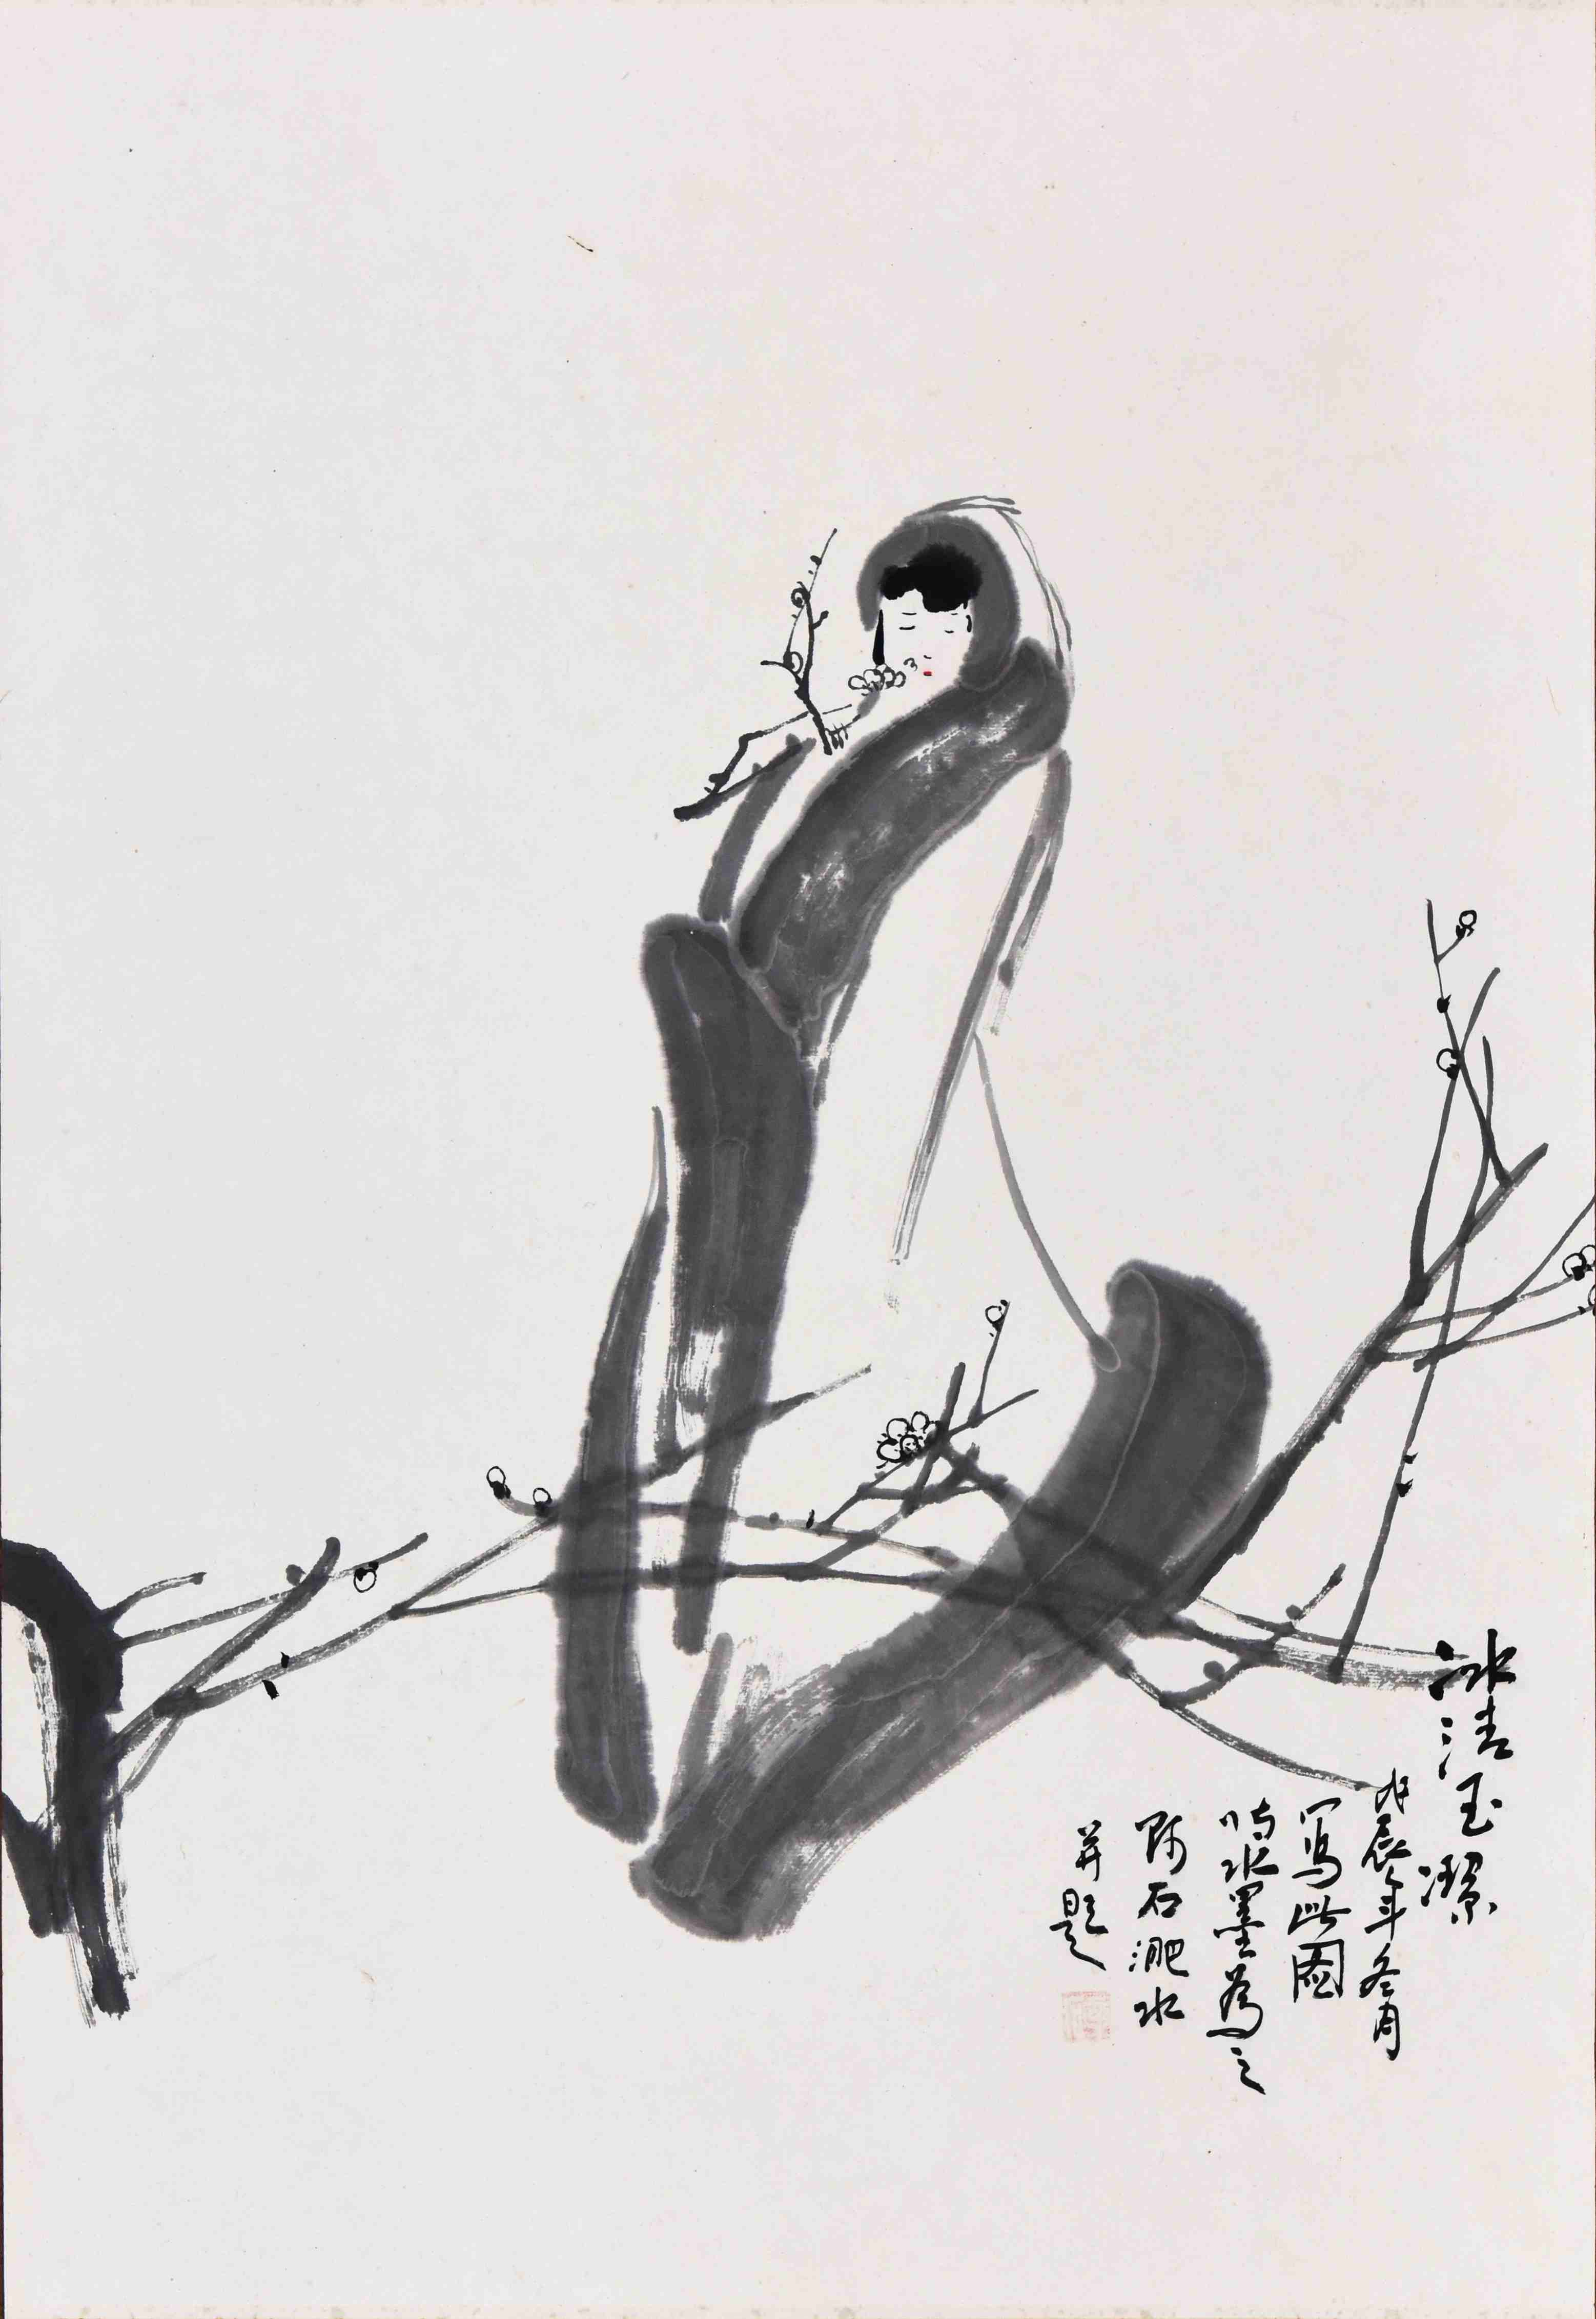 冰清玉潔
戊辰年冬月
寫此圖
時水墨為之
野石淝水
并題